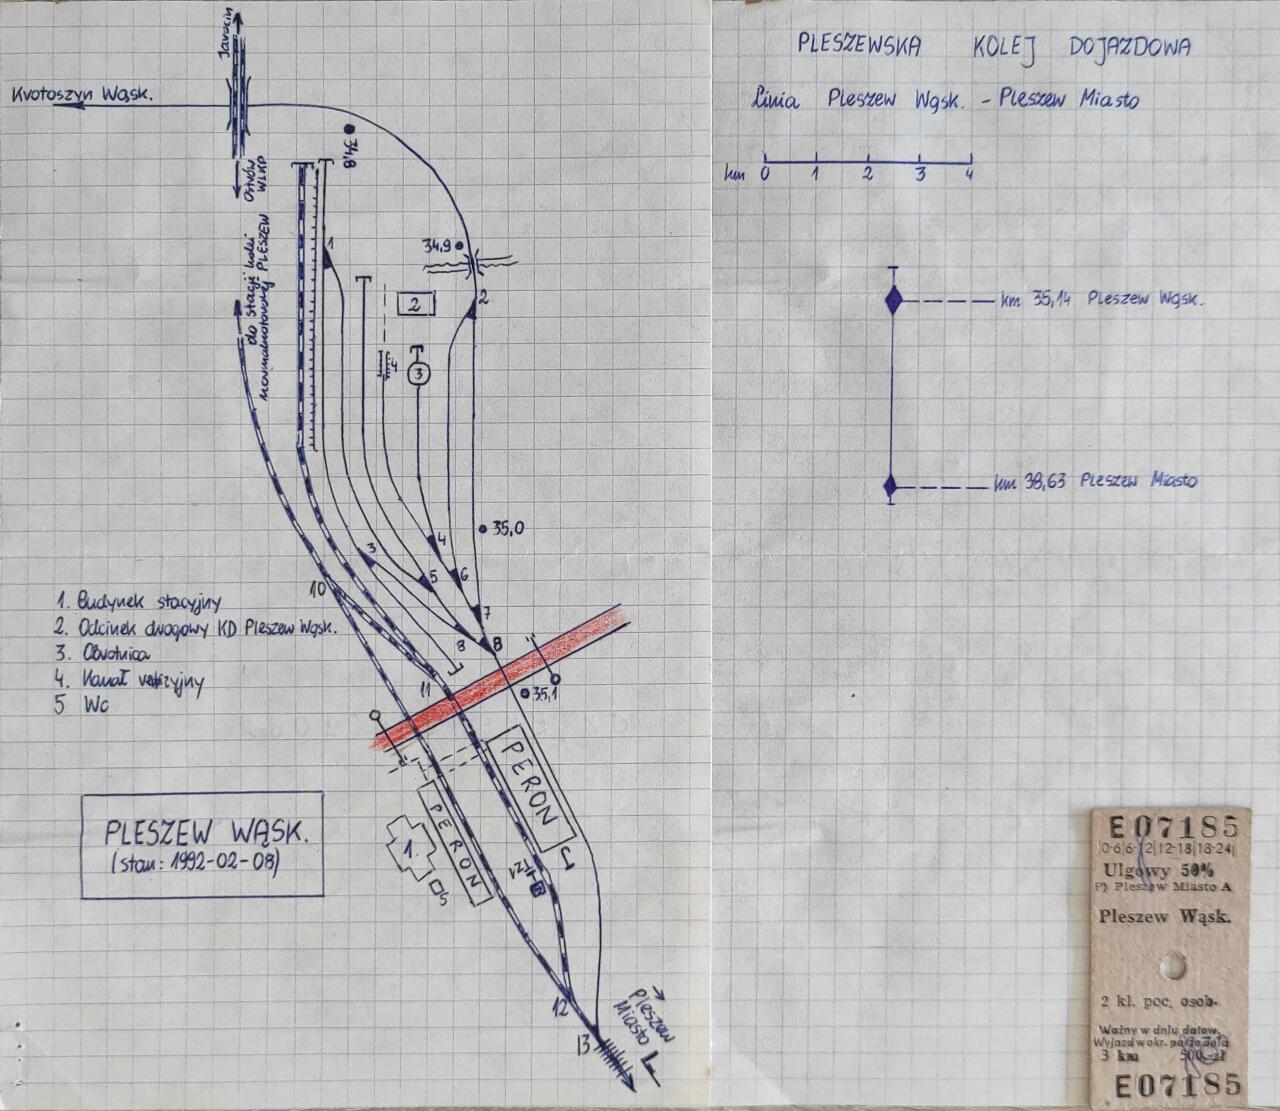 Jarocin
Krotoszyn Wąsk.
34,8
Ostrów
WLKP
do stacji kolei
normalnotorowej PLESZEW
1
34,9
2
2
3
4
35,0
3
4
5
6
7
8
8
10
1. Budynek stacyjny
2. Odcinek drogowy KD Pleszew Wąsk.
3. Obrotnica
4. Kanał rewizyjny
5 Wc
11
35,1
PERON
PERON
1.
5
PLESZEW WĄSK.
(stan: 1992-02-08)
12
13
Pleszew
Miasto
PLESZEWSKA KOLEJ DOJAZDOWA
Linia Pleszew Wąsk. - Pleszew Miasto
km 0 1 2 3 4
km 35,14 Pleszew Wąsk.
km 38,63 Pleszew Miasto
E07185
0-6 6-12 12-18 18-24
Ulgowy 50%
P) Pleszew Miasto A
Pleszew Wąsk.
2 kl. poc. osob.
Ważny w dniu datow.
Wyjazd w okr. porze dnia
3 km 500,-zł
E07185